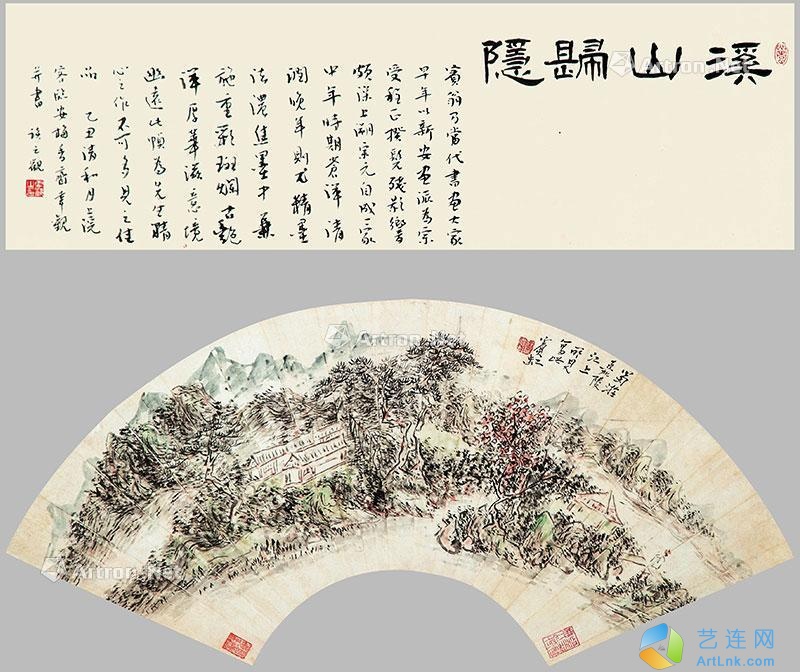 溪山歸隱
賓翁乃當代書画大家
早年以新安画派為宗
受程正揆髡殘影響
頗深上溯宋元自成一家
中年時期蒼渾清
潤晚年則尤精墨
法濃焦墨中兼
施重彩斑斕古艷
渾厚華滋意境
幽遠此幀為先生精
心之作不可多見之佳
品 乙丑清和月上浣
客臨安梅香齋幸觀
并書
蜀游
江上
所見
賓虹
Artron.Net
Artron.Net
Artron.Net
Artron.Net
Artron.Net
Artron.Net
艺连网
ArtLnk.Com